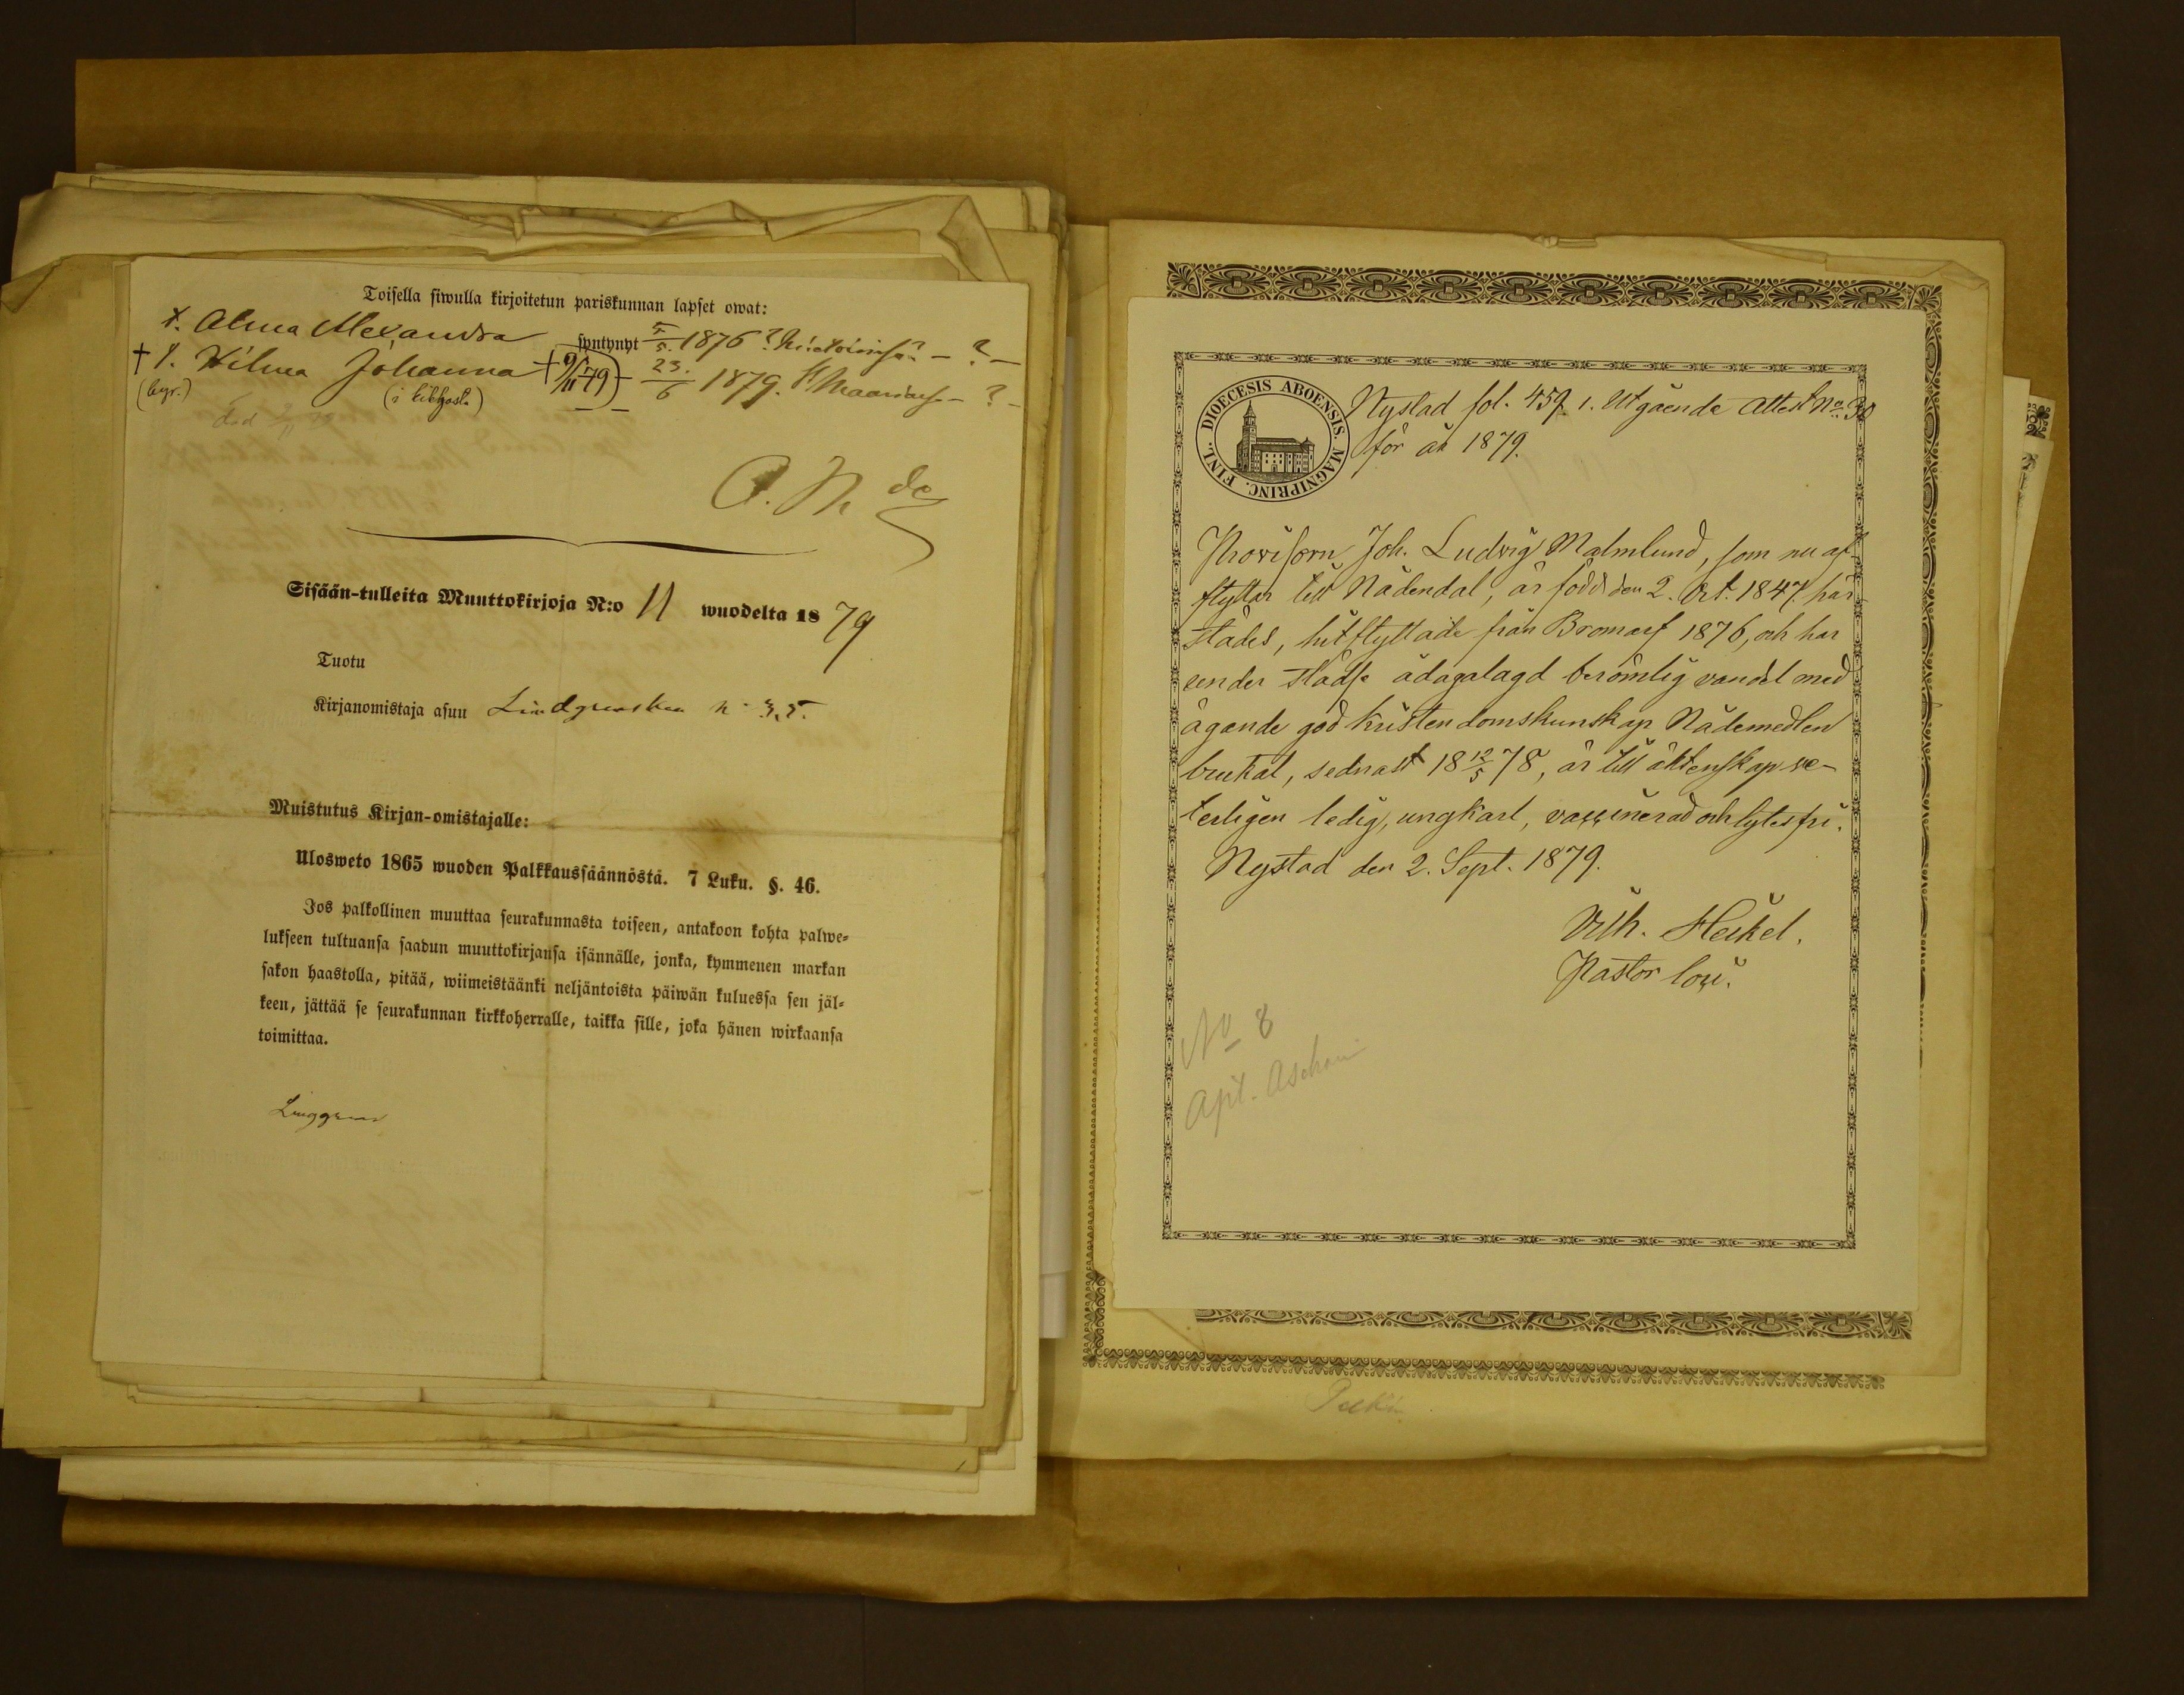 Toisella siwulla kirjoitetun pariskunnan lapset owat:
Alma Alexandra syntynyt 5/5. 1876 ? - ? -
† Wilma Johanna († 9/11 79) - 23./6 1879. - ? -
(begr.)
död 9/11 79
Sisään-tulleita Muuttokirjoja N:o 11 wuodelta 1879
Tuotu
Kirjanomistaja asuu n. 35.
Muistutus Kirjan-omistajalle:
Ulosweto 1865 wuoden Palkkaussäännöstä. 7 Luku. §. 46.
Jos palkollinen muuttaa seurakunnasta toiseen, antakoon kohta palwe-
lukseen tultuansa saadun muuttokirjansa isännälle, jonka, kymmenen markan
sakon haastolla, pitää, wiimeistäänki neljäntoista päiwän kuluessa sen jäl-
keen, jättää se seurakunnan kirkkoherralle, taikka sille, joka hänen wirkaansa
toimittaa.
DIOECESIS ABOENSIS. MAGNIPRINC. FINL.
Nystad fol. 459. 1. Utgående Attest No 30
för år 1879.
Provisorn Joh. Ludvig Malmlund, som nu af-
flyttar till Nådendal, är född den 2. Oct. 1847. här-
städes, hitflyttade från Bromarf 1876, och har
under städse ådagalagd berömlig vandel med
ägande god kristendomskunskap Nådemedlen
brukat, sednast 18 12/5 78, är till äktenskap ve-
terligen ledig, ungkarl, vaccinerad och lytesfri.
Nystad den 2. Sept. 1879.
Vilh. Heikel.
Pastor loci.
No 8
Apt.